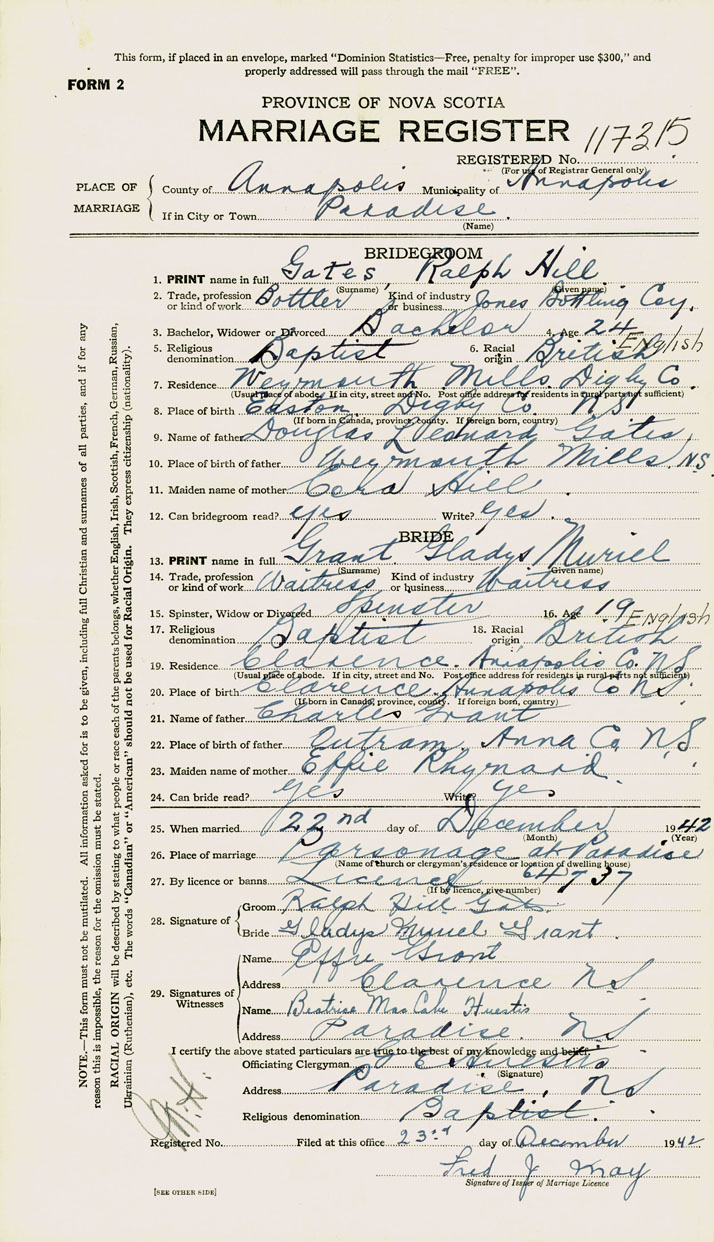 This form, if placed in an envelope, marked "Dominion Statistics—Free, penalty for improper use $300," and
properly addressed will pass through the mail "FREE".
FORM 2
PROVINCE OF NOVA SCOTIA
MARRIAGE REGISTER
117315
REGISTERED No.
(For use of Registrar General only)
PLACE OF MARRIAGE
County of Annapolis Municipality of Annapolis
If in City or Town Paradise
(Name)
BRIDEGROOM
1. PRINT name in full Gates, Ralph Hill
(Surname) (Given name)
2. Trade, profession or kind of work Bottler Kind of industry or business Jones Bottling Coy.
3. Bachelor, Widower or Divorced Bachelor 4. Age 24
5. Religious denomination Baptist 6. Racial origin British English
7. Residence Weymouth Mills Digby Co.
(Usual place of abode. If in city, street and No. Post office address for residents in rural parts not sufficient)
8. Place of birth Easton Digby Co. N.S.
(If born in Canada, province, county. If foreign born, country)
9. Name of father Douglas Leonard Gates
10. Place of father Weymouth Mills, N.S.
11. Maiden name of mother Cora Hill.
12. Can bridegroom read? yes Write? yes.
BRIDE
13. PRINT name in full Grant Gladys Muriel
(Surname) (Given name)
14. Trade, profession or kind of work Waitress Kind of industry or business Waitress
15. Spinster, Widow or Divorced Spinster 16. Age 19
17. Religious denomination Baptist 18. Racial origin British English
19. Residence Clarence. Annapolis Co. N.S.
(Usual place of abode. If in city, street and No. Post office address for residents in rural parts not sufficient)
20. Place of birth Clarence. Annapolis Co N.S.
(If born in Canada, province, county. If foreign born, country)
21. Name of father Charles Grant
22. Place of birth of father Outram, Anna Co, N.S.
23. Maiden name of mother Effie Rhynard.
24. Can bride read? yes Write? yes
25. When married 22nd day of December 1942
(Month) (Year)
26. Place of marriage Parsonage at Paradise
(Name of church or clergyman's residence or location of dwelling house)
27. By licence or banns Licence 64737
(If by licence, give number)
28. Signature of
Groom Ralph Hill Gates
Bride Gladys Muriel Grant.
29. Signatures of Witnesses
Name Effie Grant
Address Clarence NS
Name Beatrise MacCabe Huestis
Address Paradise. NS
I certify the above stated particulars are true to the best of my knowledge and belief.
Officiating Clergyman Huestis
(Signature)
Address Paradise, NS
Religious denomination Baptist.
Registered No. Filed at this office 23rd day of December 1942
Fred J May
Signature of Issuer of Marriage Licence
[SEE OTHER SIDE]
NOTE.—This form must not be mutilated. All information asked for is to be given, including full Christian and surnames of all parties, and if for any
reason this is impossible, the reason for the omission must be stated.
RACIAL ORIGIN will be described by stating to what people or race each of the parents belongs, whether English, Irish, Scottish, French, German, Russian,
Ukrainian (Ruthenian), etc. The words "Canadian" or "American" should not be used for Racial Origin. They express citizenship (nationality).